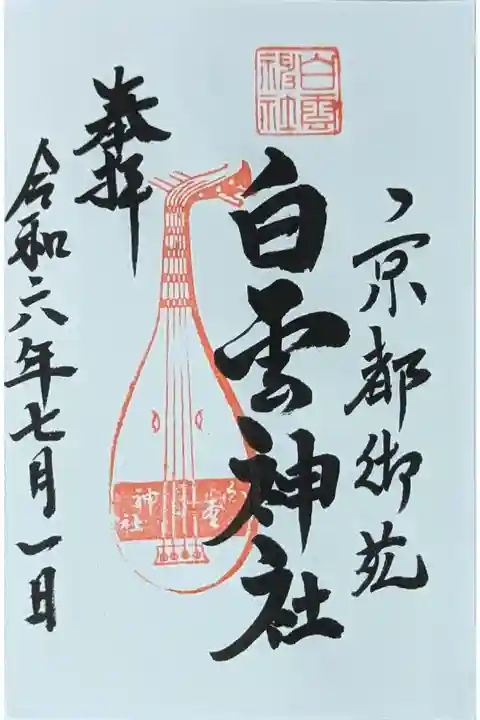 京都御苑
白雲
神社
白雲神社
白雲
神社
奉拝
令和六年七月一日